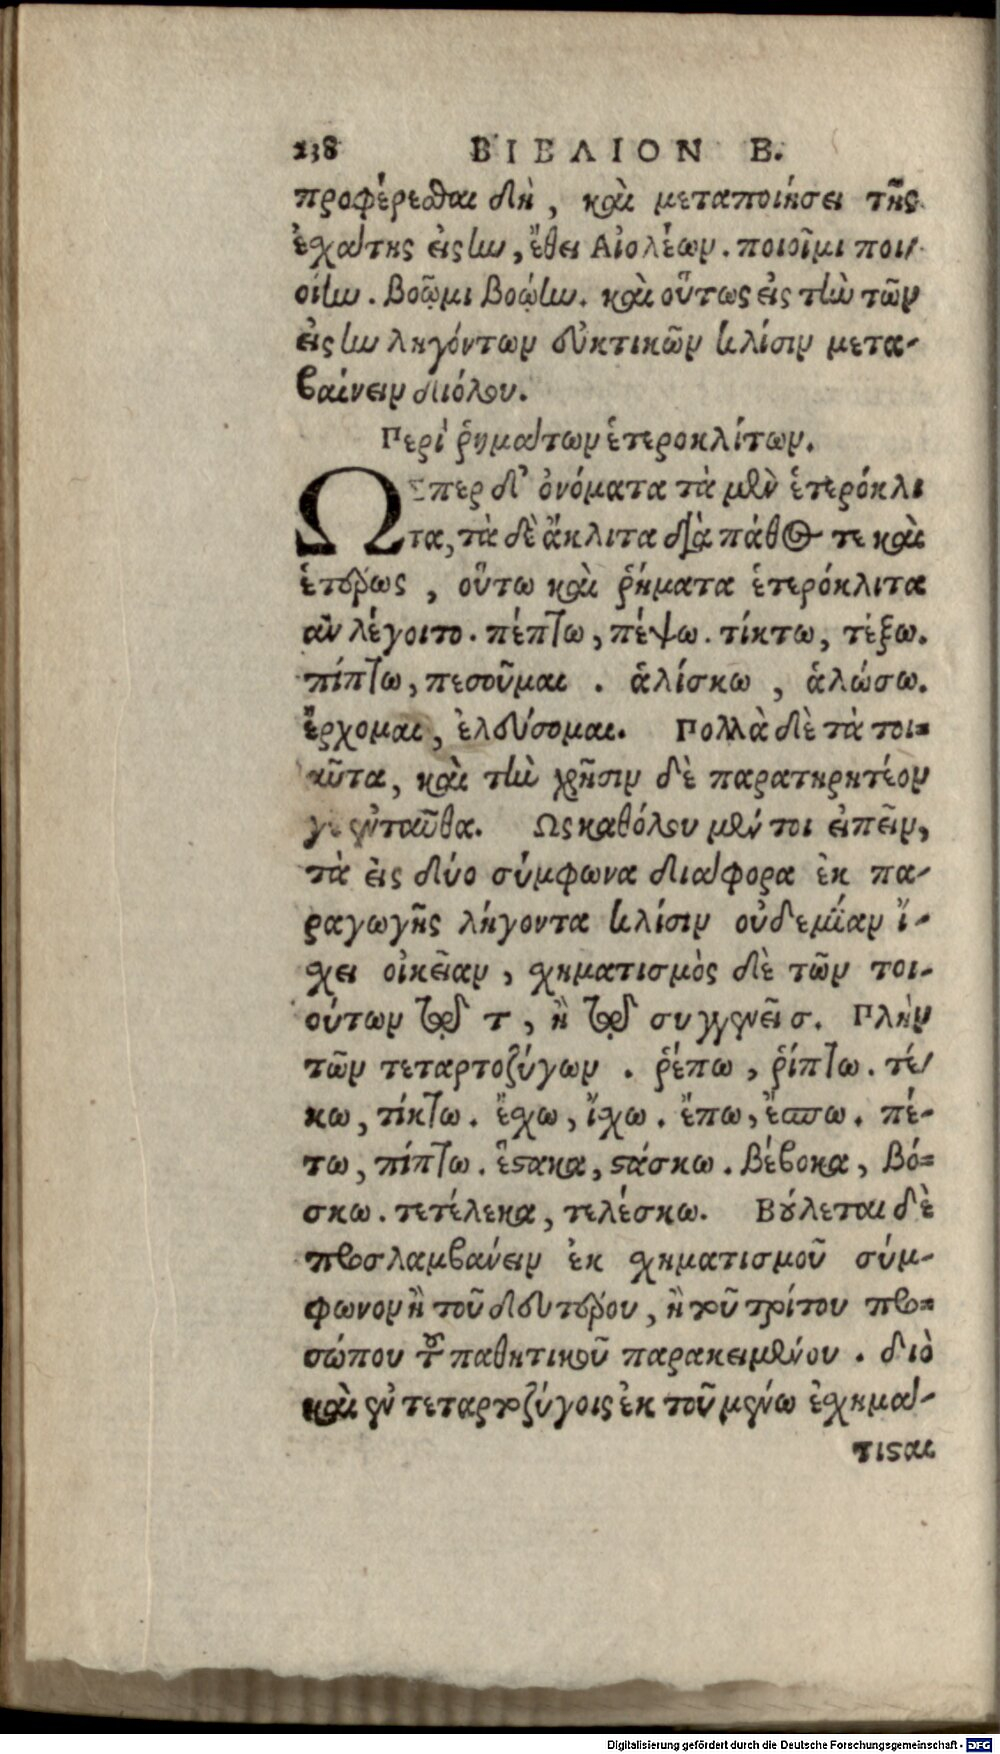 238 ΒΙΒΛΙΟΝ Β.
προφέρεσθαι δὴ, καὶ μεταποιήσει τῆς
ἐχάτης εἰς ην, ἔθει Αἰολέων. ποιοῖμι ποι-
οίην. βοῷμι βοῴην. καὶ οὕτως εἰς τὴν τῶν
εἰς ην ληγόντων εὐκτικῶν κλίσιν μετα-
βαίνειν διόλου.
Περὶ ῥημάτων ἑτεροκλίτων.
ΩΣπερ δ' ὀνόματα τὰ μὲν ἑτερόκλι
τα, τὰ δὲ ἄκλιτα διὰ πάθος τε καὶ
ἑτέρως, οὕτω καὶ ῥήματα ἑτερόκλιτα
ἂν λέγοιτο. πέπτω, πέψω. τίκτω, τέξω.
πίπτω, πεσοῦμαι. ἁλίσκω, ἁλώσω.
ἔρχομαι, ἐλεύσομαι. Πολλὰ δὲ τὰ τοι-
αῦτα, καὶ τὴν χρῆσιν δὲ παρατηρητέον
γε ἐνταῦθα. Ως καθόλου μέν τοι εἰπεῖν,
τὰ εἰς δύο σύμφωνα διάφορα ἐκ πα-
ραγωγῆς λήγοντα κλίσιν οὐδεμίαν ἴ-
χει οἰκείαν, χηματισμὸς δὲ τῶν τοι-
ούτων παρὰ τ, ἢ παρὰ συγγενεῖ σ. Πλὴν
τῶν τεταρτοζύγων. ῥέπω, ῥίπτω. τέ-
κω, τίκτω. ἔχω, ἴχω. ἔπω, ἔσπω. πέ-
τω, πίπτω. ἔστακα, στάσκω. βέβοκα, βό-
σκω. τετέλεκα, τελέσκω. Βούλεται δὲ
προσλαμβάνειν ἐκ χηματισμοῦ σύμ-
φωνον ἢ τοῦ δευτέρου, ἢ τοῦ τρίτου προ-
σώπου τοῦ παθητικοῦ παρακειμένου. διὸ
καὶ ἐν τεταρτοζύγοις ἐκ τοῦ μένω ἐχημά-
τισται
Digitalisierung gefördert durch die Deutsche Forschungsgemeinschaft - DFG